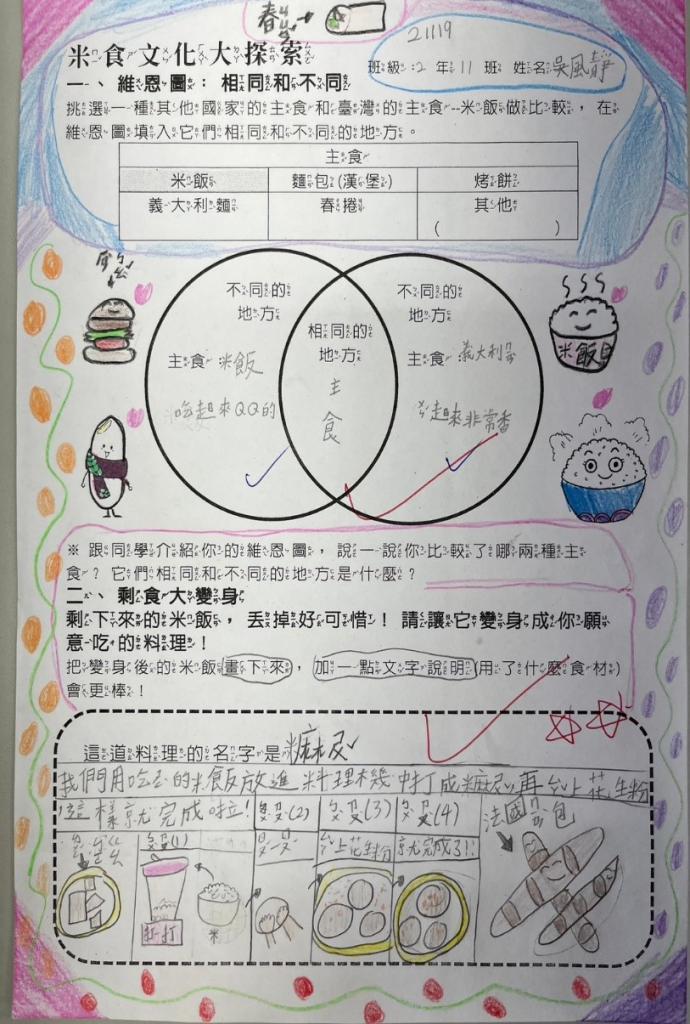 春ㄐㄩㄢˇ
米食文化大探索
21119
班級:2年11班 姓名:吳風靜
一、維恩圖：相同和不同
挑選一種其他國家的主食和臺灣的主食--米飯做比較，在
維恩圖填入它們相同和不同的地方。
主食
米飯 麵包(漢堡) 烤餅
義大利麵 春捲 其他
( )
不同的 不同的
地方 地方
相同的
地方
主食 米飯 主食 義大利ㄇㄧㄢˋ
主
食
吃起來QQ的 ㄔ起來非常香
米飯
※ 跟同學介紹你的維恩圖，說一說你比較了哪兩種主
食？它們相同和不同的地方是什麼？
二、剩食大變身
剩下來的米飯，丟掉好可惜！請讓它變身成你願
意吃的料理！
把變身後的米飯畫下來，加一點文字說明(用了什麼食材)
會更棒！
這道料理的名字是 糜尼
我們用吃不的米飯放進料理機中打成糜尼再ㄐㄧㄚ上花生粉
這樣就完成啦!
ㄅㄨˋㄗㄡˋ(1) (2) (3) (4)
法國ㄇㄧㄢˋ包
上花生粉 就完成了!!
打打 米